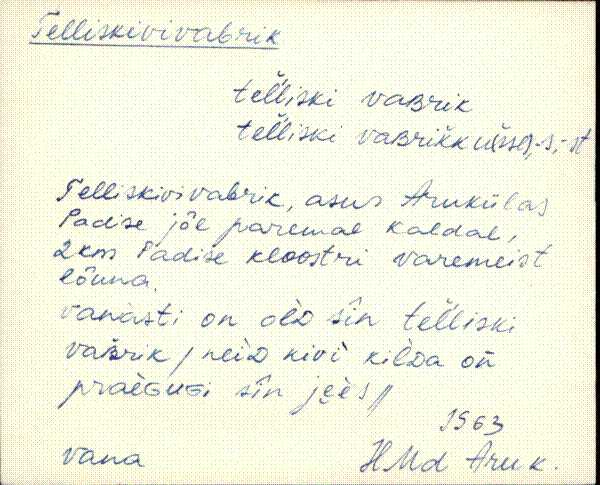 Telliskivivabrik
tèl̀liski vaʙrik
tèl̀liski vaʙrikku(sse),-s,-st
Telliskivivabrik, asus Arukülas
Padise jõe paremal kaldal,
2 km Padise kloostri varemeist
lõuna.
vanàsti on olD sîn tèl̀liski
vaʙrik / neiD kivì kilDa oǹ
praèɢuɢi sîn jẹès //
1963
vana HMd Aruk.